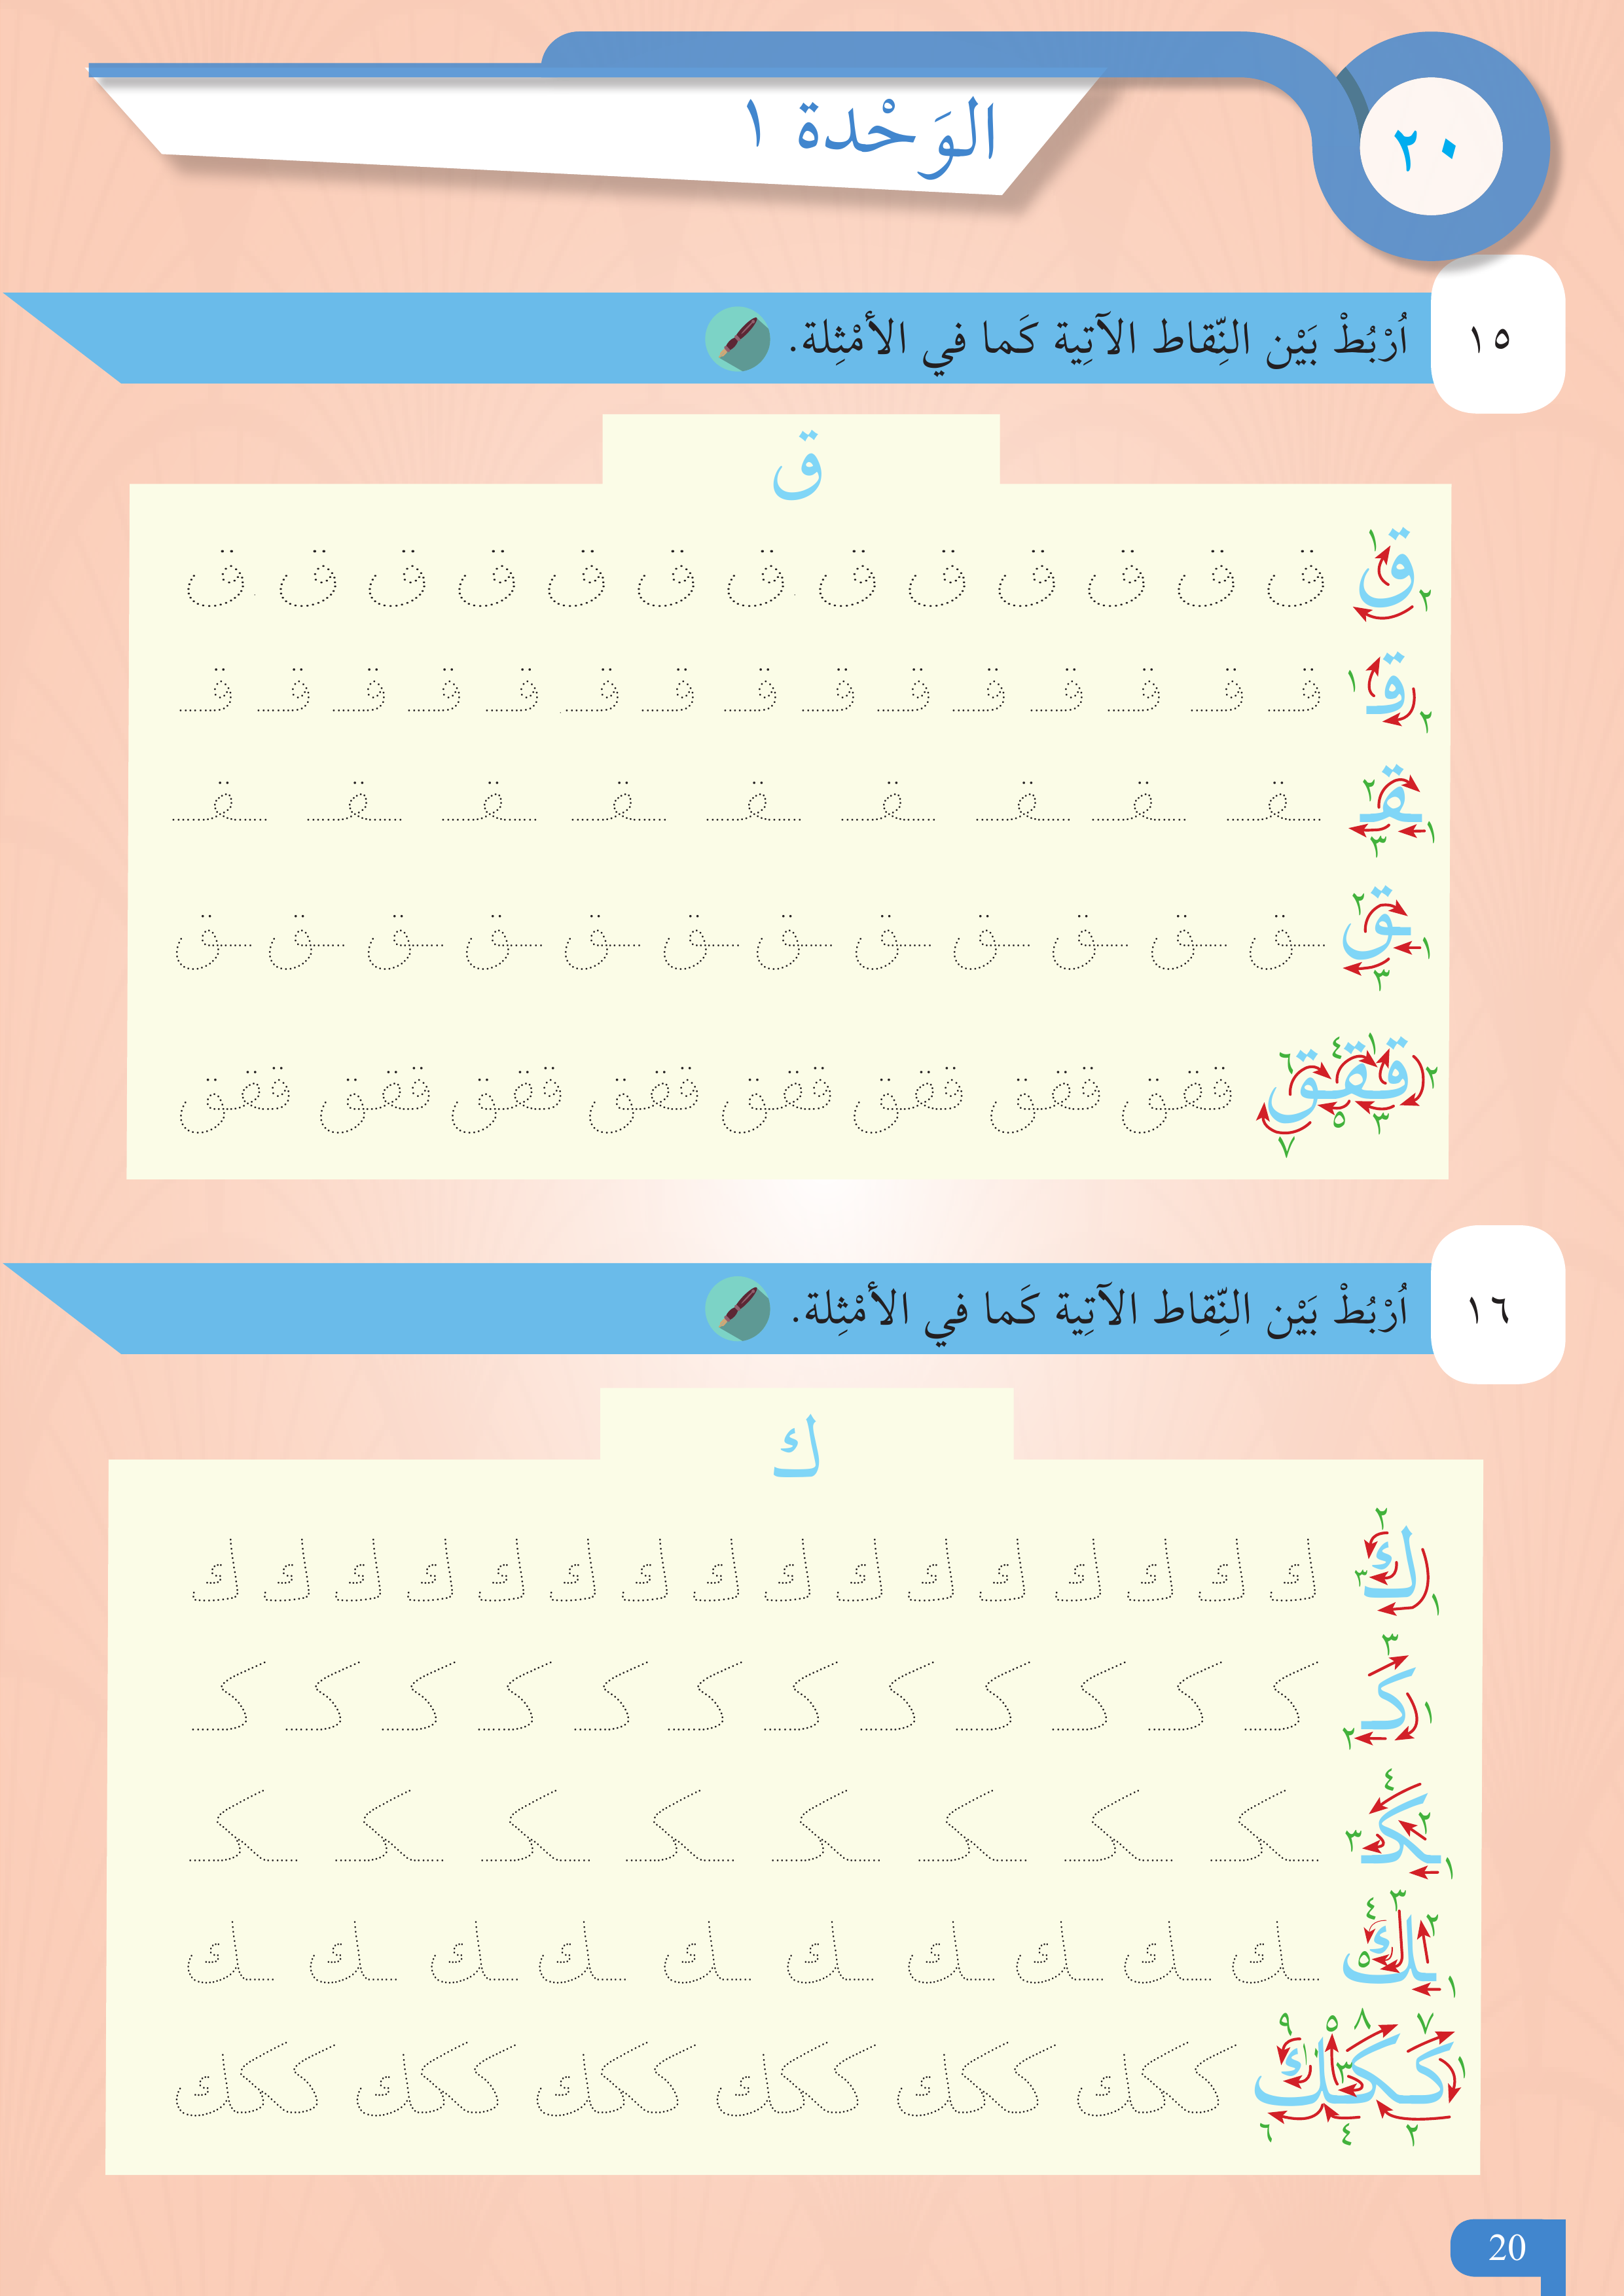 ٢٠
الوَحْدة ١
١٥
اُرْبُطْ بَيْن النِّقاط الآتِية كَما في الأمْثِلة.
ق
١ ٢
ق ق ق ق ق ق ق ق ق ق ق ق ق ق
١ ٢
قـ قـ قـ قـ قـ قـ قـ قـ قـ قـ قـ قـ قـ قـ قـ قـ
١ ٢ ٣
ـقـ ـقـ ـقـ ـقـ ـقـ ـقـ ـقـ ـقـ ـقـ ـقـ
١ ٢ ٣
ـق ـق ـق ـق ـق ـق ـق ـق ـق ـق ـق ـق ـق
١ ٢ ٣ ٤ ٥ ٦ ٧
ققق ققق ققق ققق ققق ققق ققق ققق ققق
١٦
اُرْبُطْ بَيْن النِّقاط الآتِية كَما في الأمْثِلة.
ك
١ ٢ ٣
ك ك ك ك ك ك ك ك ك ك ك ك ك ك ك ك ك
١ ٢ ٣
كـ كـ كـ كـ كـ كـ كـ كـ كـ كـ كـ كـ كـ
١ ٢ ٣ ٤
ـكـ ـكـ ـكـ ـكـ ـكـ ـكـ ـكـ ـكـ ـكـ
١ ٢ ٣ ٤ ٥
ـك ـك ـك ـك ـك ـك ـك ـك ـك ـك ـك
١ ٢ ٣ ٤ ٥ ٦ ٧ ٨ ٩
ككك ككك ككك ككك ككك ككك ككك
20